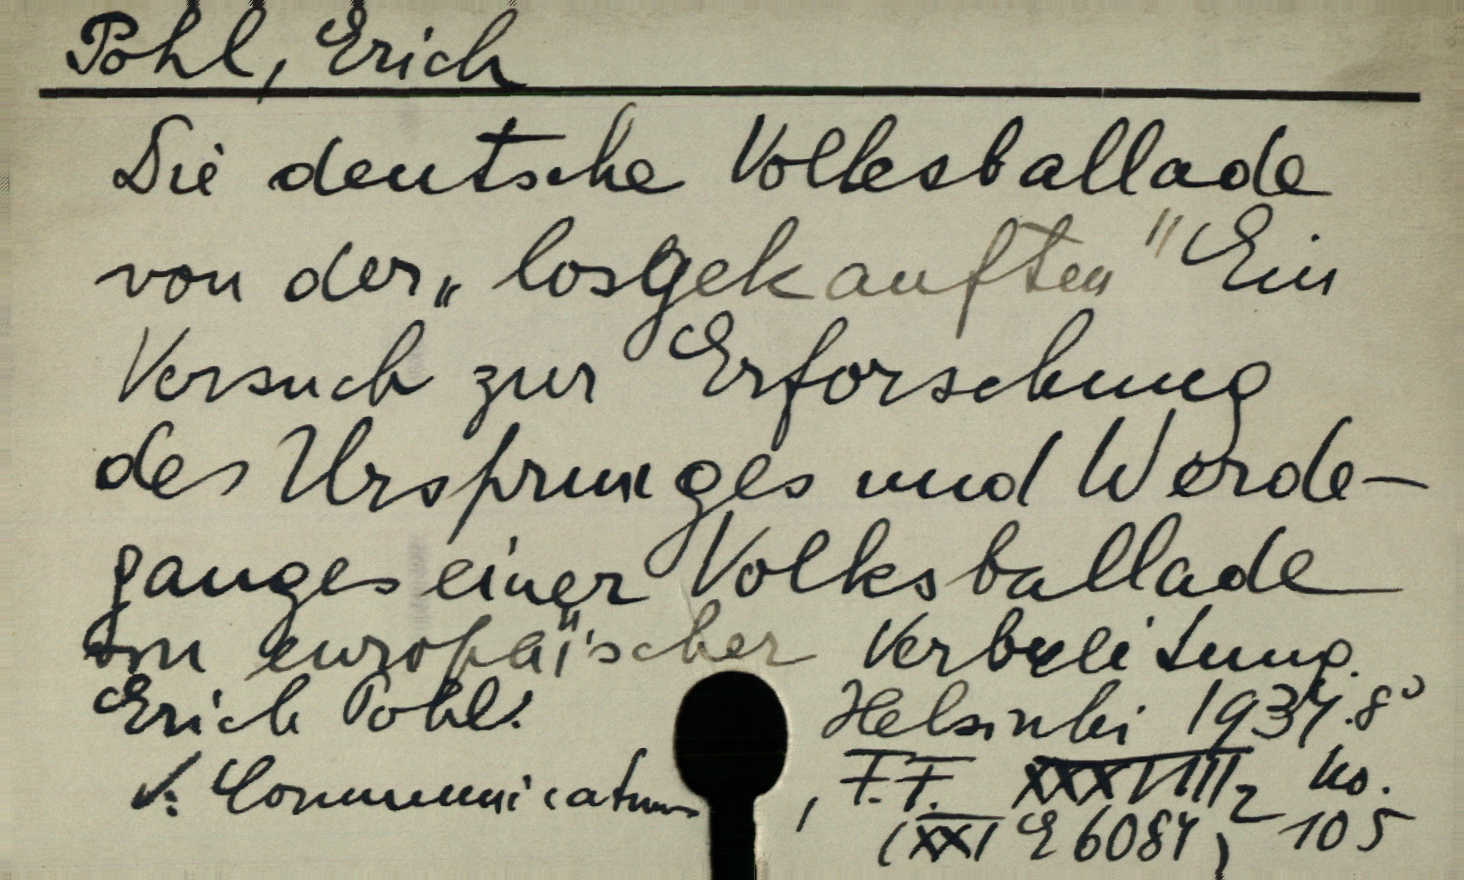 Pohl, Erich
Die deutsche Volksballade
von der „losgekauften" Ein
Versuch zur Erforschung
des Ursprunges und Werde-
ganges einer Volksballade
von europäischer Verbreitung.
Erich Pohl. Helsinki 1934. 8°
v: Communications, F.F. XXXVIII2 No.
(XXI E 6084) 105